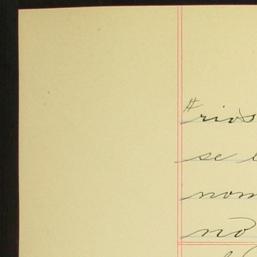 "rios
se
nom
no